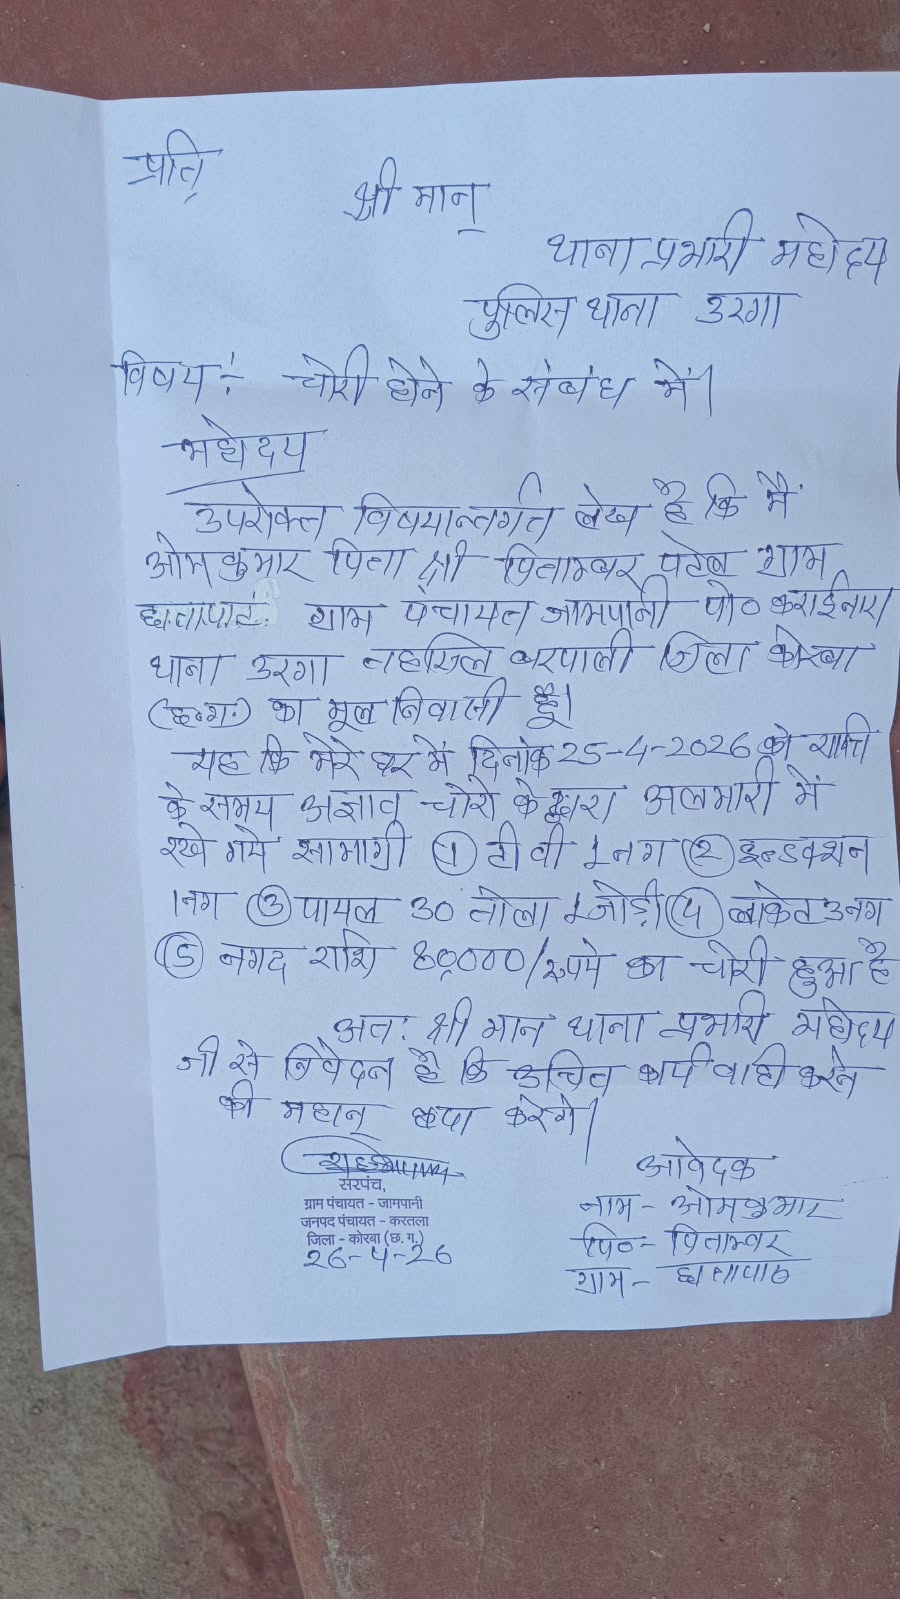 प्रति,
श्री मान्
थाना प्रभारी महोदय
पुलिस थाना उरगा
विषय:- चोरी होने के संबंध में।
महोदय
उपरोक्त विषयान्तर्गत लेख है कि मैं
ओमकुमार पिता श्री पिताम्बर पटेल ग्राम
ग्राम पंचायत जामपानी पो० कराईनारा
थाना उरगा तहसिल बरपाली जिला कोरबा
(छ.ग.) का मूल निवासी हूँ।
यह कि मेरे घर में दिनांक 25-4-2026 को रात्रि
के समय अज्ञात चोरो के द्वारा अलमारी में
रखे गये सामाग्री ① टी वी 1 नग ② इन्डक्शन
1नग ③ पायल 30 तोला 1 जोड़ी ④ लाकेट 3नग
⑤ नगद राशि 80,000/ रुपये का चोरी हुआ है
अतः श्री मान थाना प्रभारी महोदय
जी से निवेदन है कि उचित कार्यवाही करने
की महान् कृपा करेंगे।
सरपंच,
ग्राम पंचायत - जामपानी
जनपद पंचायत - करतला
जिला - कोरबा (छ.ग.)
26-4-26
आवेदक
नाम - ओमकुमार
पि०- पिताम्बर
ग्राम - छातापाठ